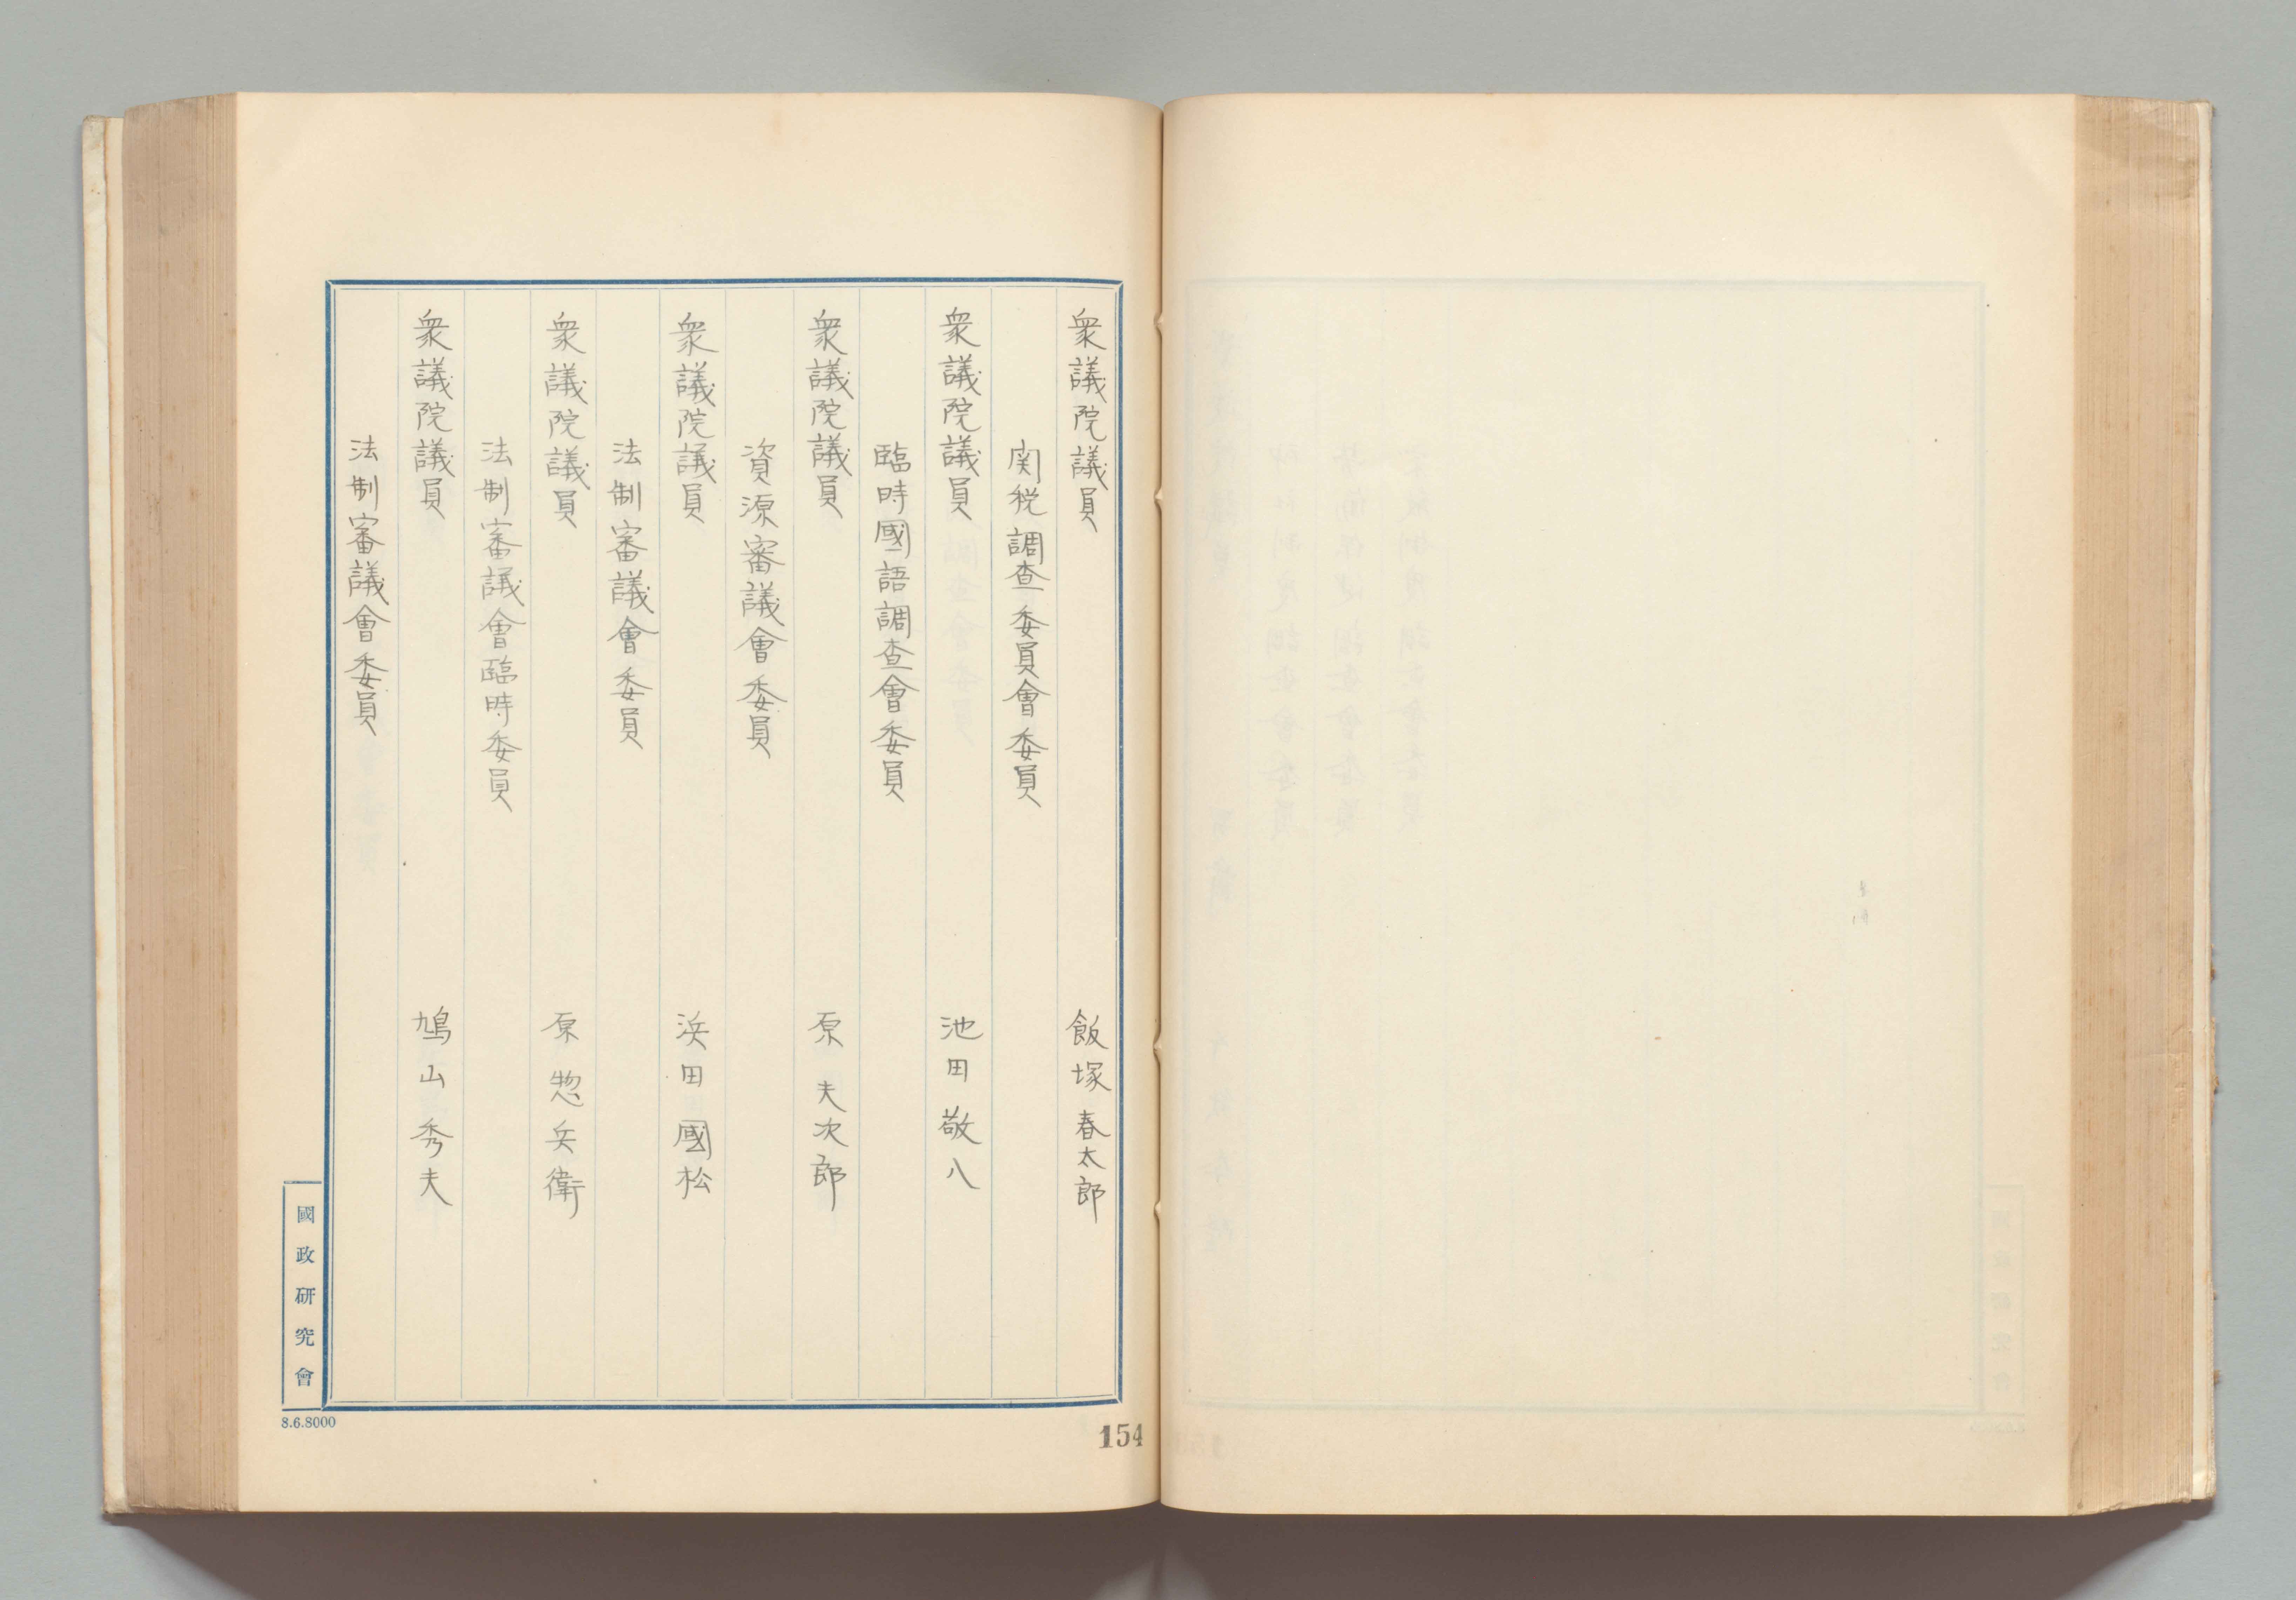 衆議院議員 飯塚春太郎
関税調査委員會委員
衆議院議員 池田敬八
臨時國語調査會委員
衆議院議員 原夫次郎
資源審議會委員
衆議院議員 浜田國松
法制審議會委員
衆議院議員 原惣兵衛
法制審議會臨時委員
衆議院議員 鳩山秀夫
法制審議會委員
國政研究會
8.6.8000
154